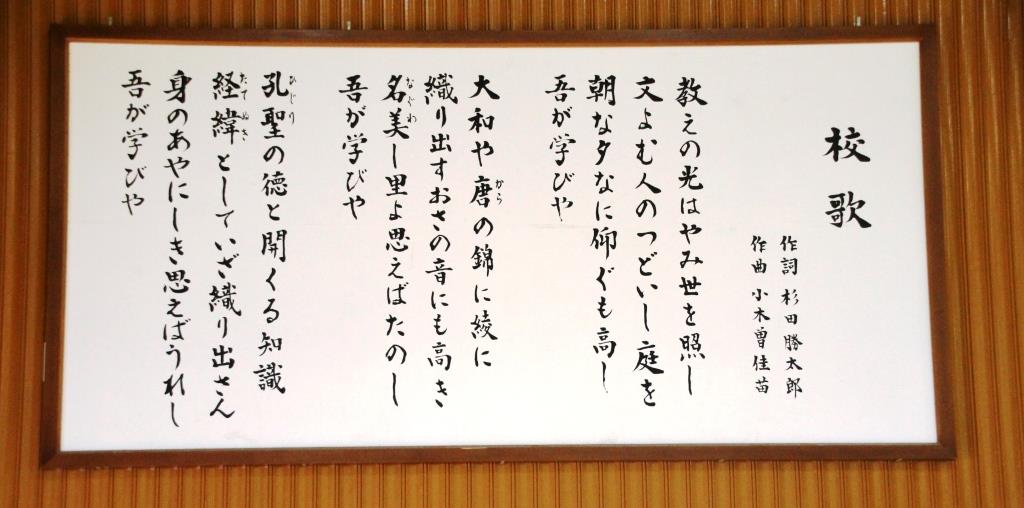 校歌
作詞 杉田勝太郎
作曲 小木曽佳苗
教えの光はやみ世を照し
文よむ人のつどいし庭を
朝な夕なに仰ぐも高し
吾が学びや
大和や唐の錦に綾に
から
織り出すおさの音にも高き
名美し里よ思えばたのし
なぐわ
吾が学びや
孔聖の徳と開くる知識
ひじり
経緯としていざ織り出さん
たてぬき
身のあやにしき思えばうれし
吾が学びや